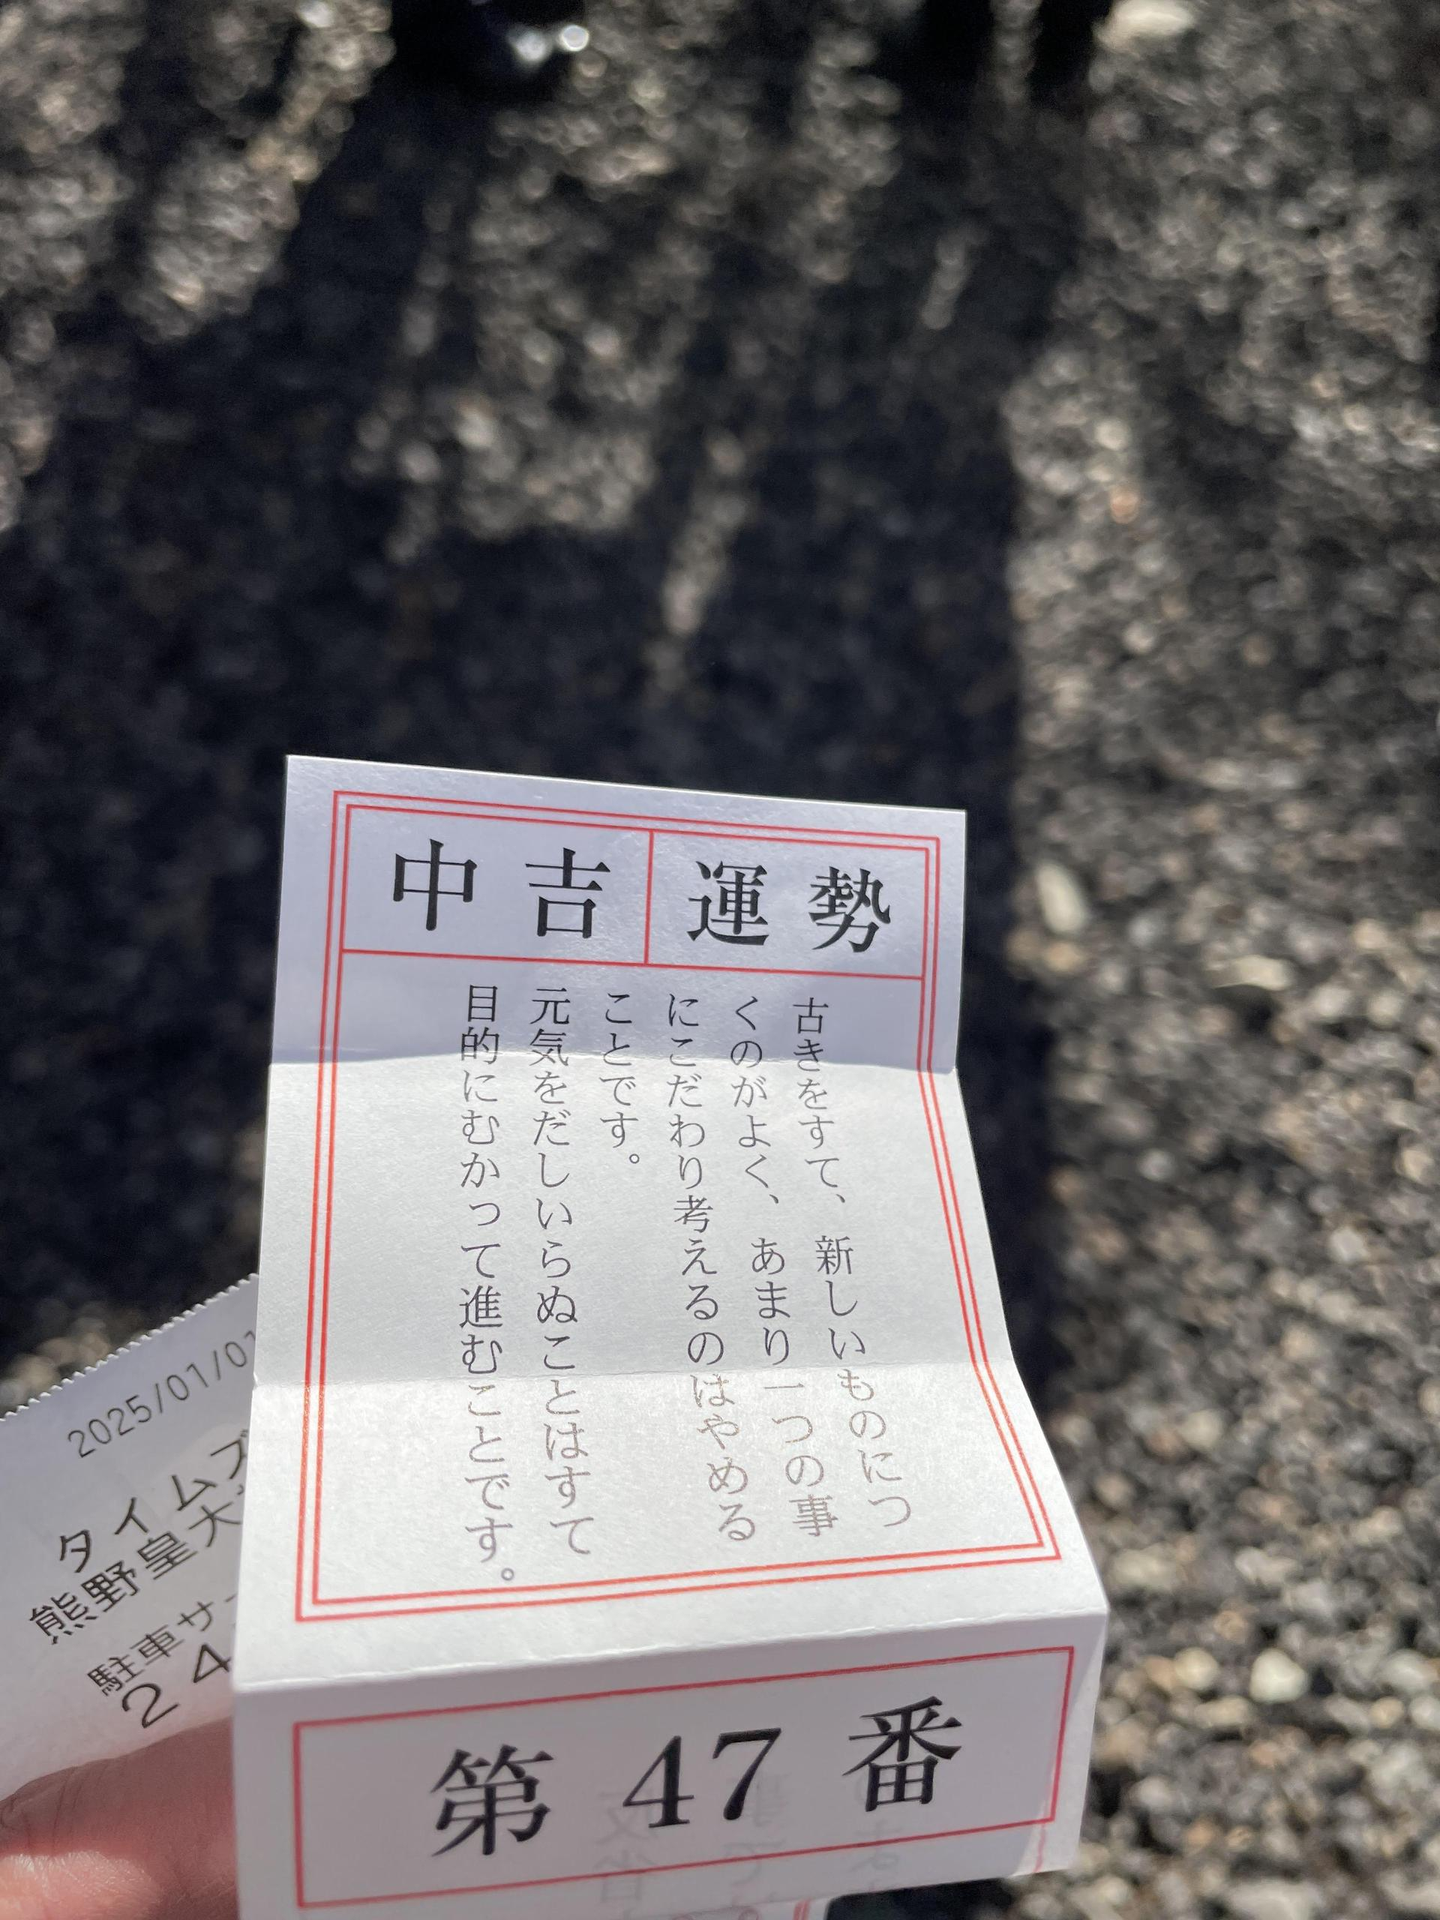 運勢 中吉
古きをすて、新しいものにつ
くのがよく、あまり一つの事
にこだわり考えるのはやめる
ことです。
元気をだしいらぬことはすて
目的にむかって進むことです。
第47番
2025/01/01
タイムズ
熊野皇大
駐車サー
24